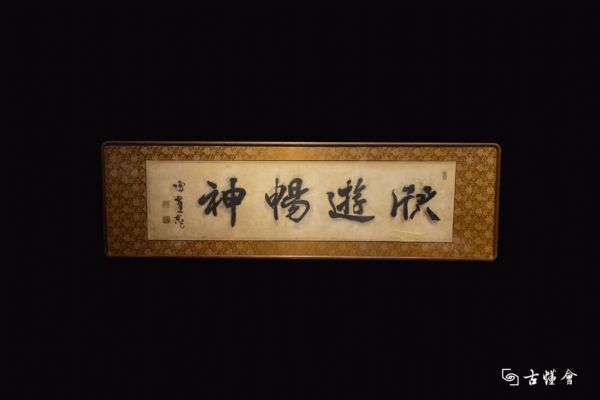 欣遊暢神
古懂會